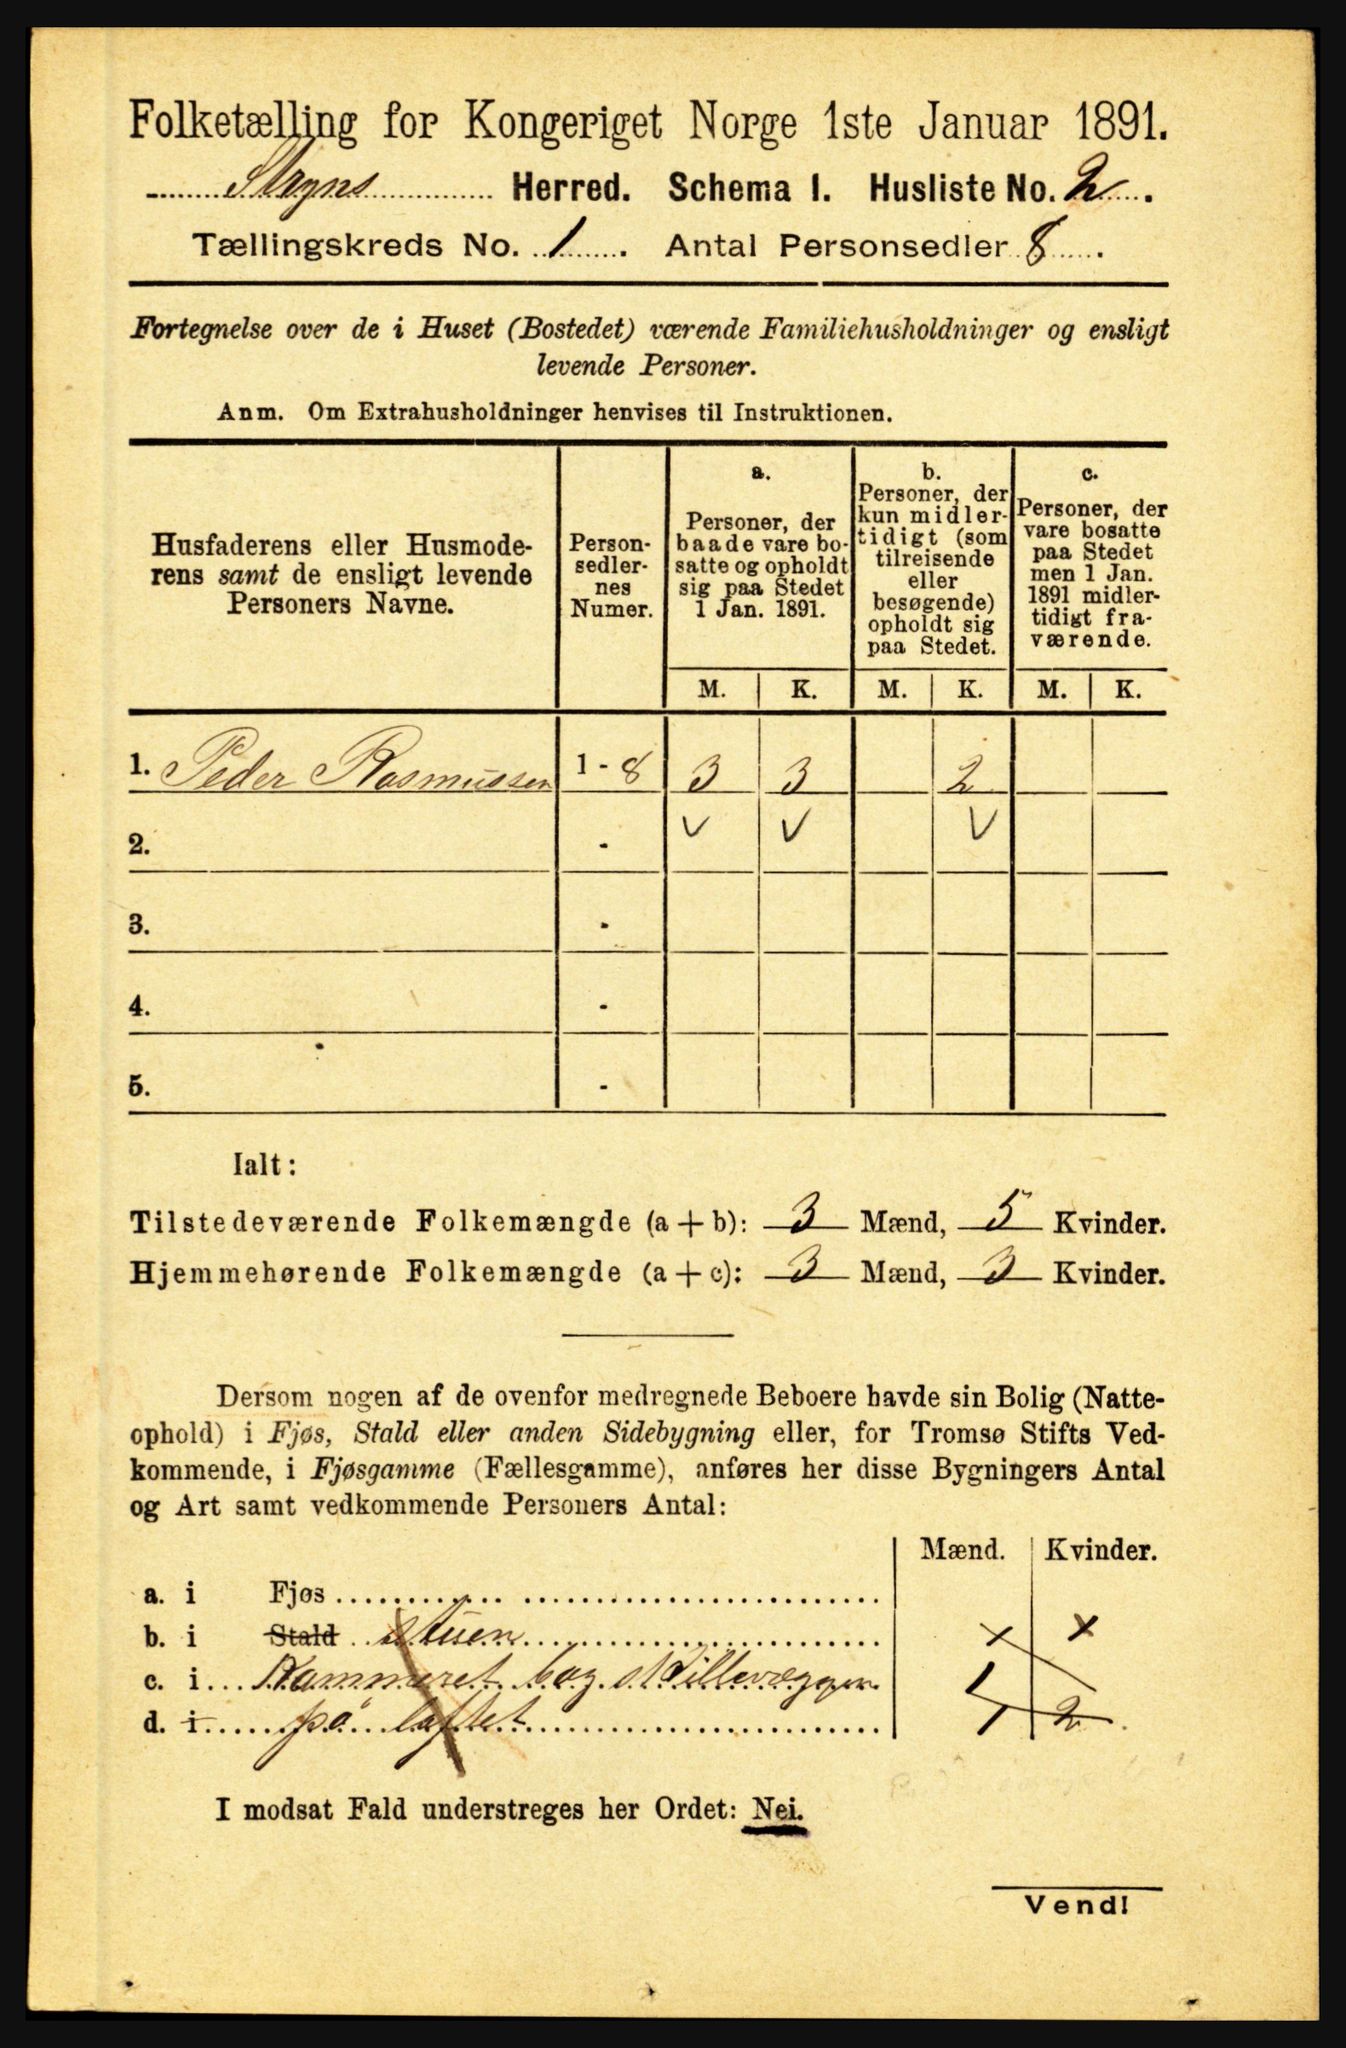 Folketælling for Kongeriget Norge 1ste Januar 1891.
Stryns Herred. Schema I. Husliste No. 2.
Tællingskreds No. 1. Antal Personsedler 8.
Fortegnelse over de i Huset (Bostedet) værende Familiehusholdninger og ensligt
levende Personer.
Anm. Om Extrahusholdninger henvises til Instruktionen.
Husfaderens eller Husmode-
rens samt de ensligt levende
Personers Navne.
Person-
sedler-
nes
Numer.
a.
Personer, der
baade vare bo-
satte og opholdt
sig paa Stedet
1 Jan. 1891.
b.
Personer, der
kun midler-
tidigt (som
tilreisende
eller
besøgende)
opholdt sig
paa Stedet.
c.
Personer, der
vare bosatte
paa Stedet
men 1 Jan.
1891 midler-
tidigt fra-
værende.
M. K. M. K. M. K.
1. Peder Rasmussen 1 - 8 3 3 2
2. - V V V
3. -
4. -
5. -
Ialt:
Tilstedeværende Folkemængde (a + b): 3 Mænd, 5 Kvinder.
Hjemmehørende Folkemængde (a + c): 3 Mænd, 3 Kvinder.
Dersom nogen af de ovenfor medregnede Beboere havde sin Bolig (Natte-
ophold) i Fjøs, Stald eller anden Sidebygning eller, for Tromsø Stifts Ved-
kommende, i Fjøsgamme (Fællesgamme), anføres her disse Bygningers Antal
og Art samt vedkommende Personers Antal:
Mænd. Kvinder.
a. i Fjøs
b. i Stald stuen x x
c. i Kammeret bag skillevæggen 1
d. i på loftet 1 2
I modsat Fald understreges her Ordet: Nei.
Vend!